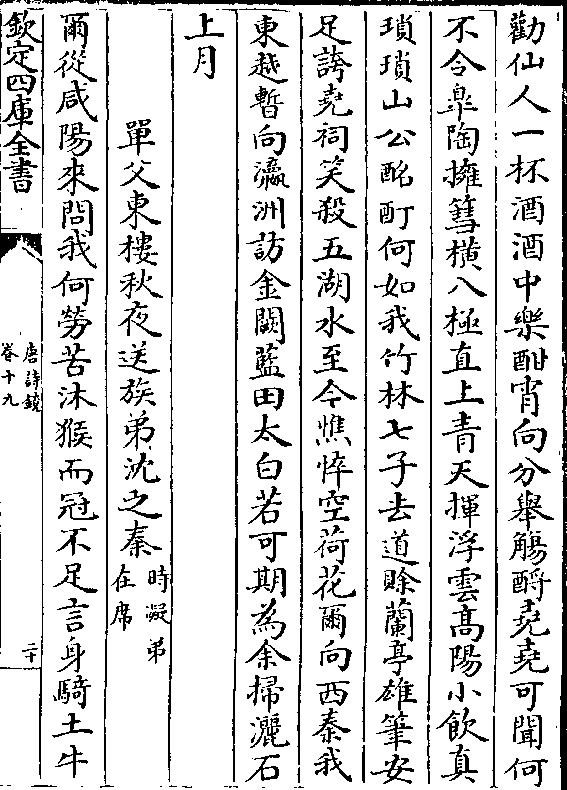 勸仙人一杯酒酒中樂酣宵向分舉觴酹堯堯可聞何
不令臯陶擁篲橫八極直上青天揮浮雲髙陽小飲真
瑣瑣山公酩酊何如我竹林七子去道賒蘭亭雄筆安
足誇堯祠笑殺五湖水至今憔悴空荷花爾向西秦我
東越暫向瀛洲訪金闕藍田太白若可期為余掃灑石
上月
單父東樓秋夜送族弟沈之秦時凝弟
在席
爾從咸陽來問我何勞苦沐猴而冠不足言身騎土牛
欽定四庫全書
唐詩鏡
卷十九
二十